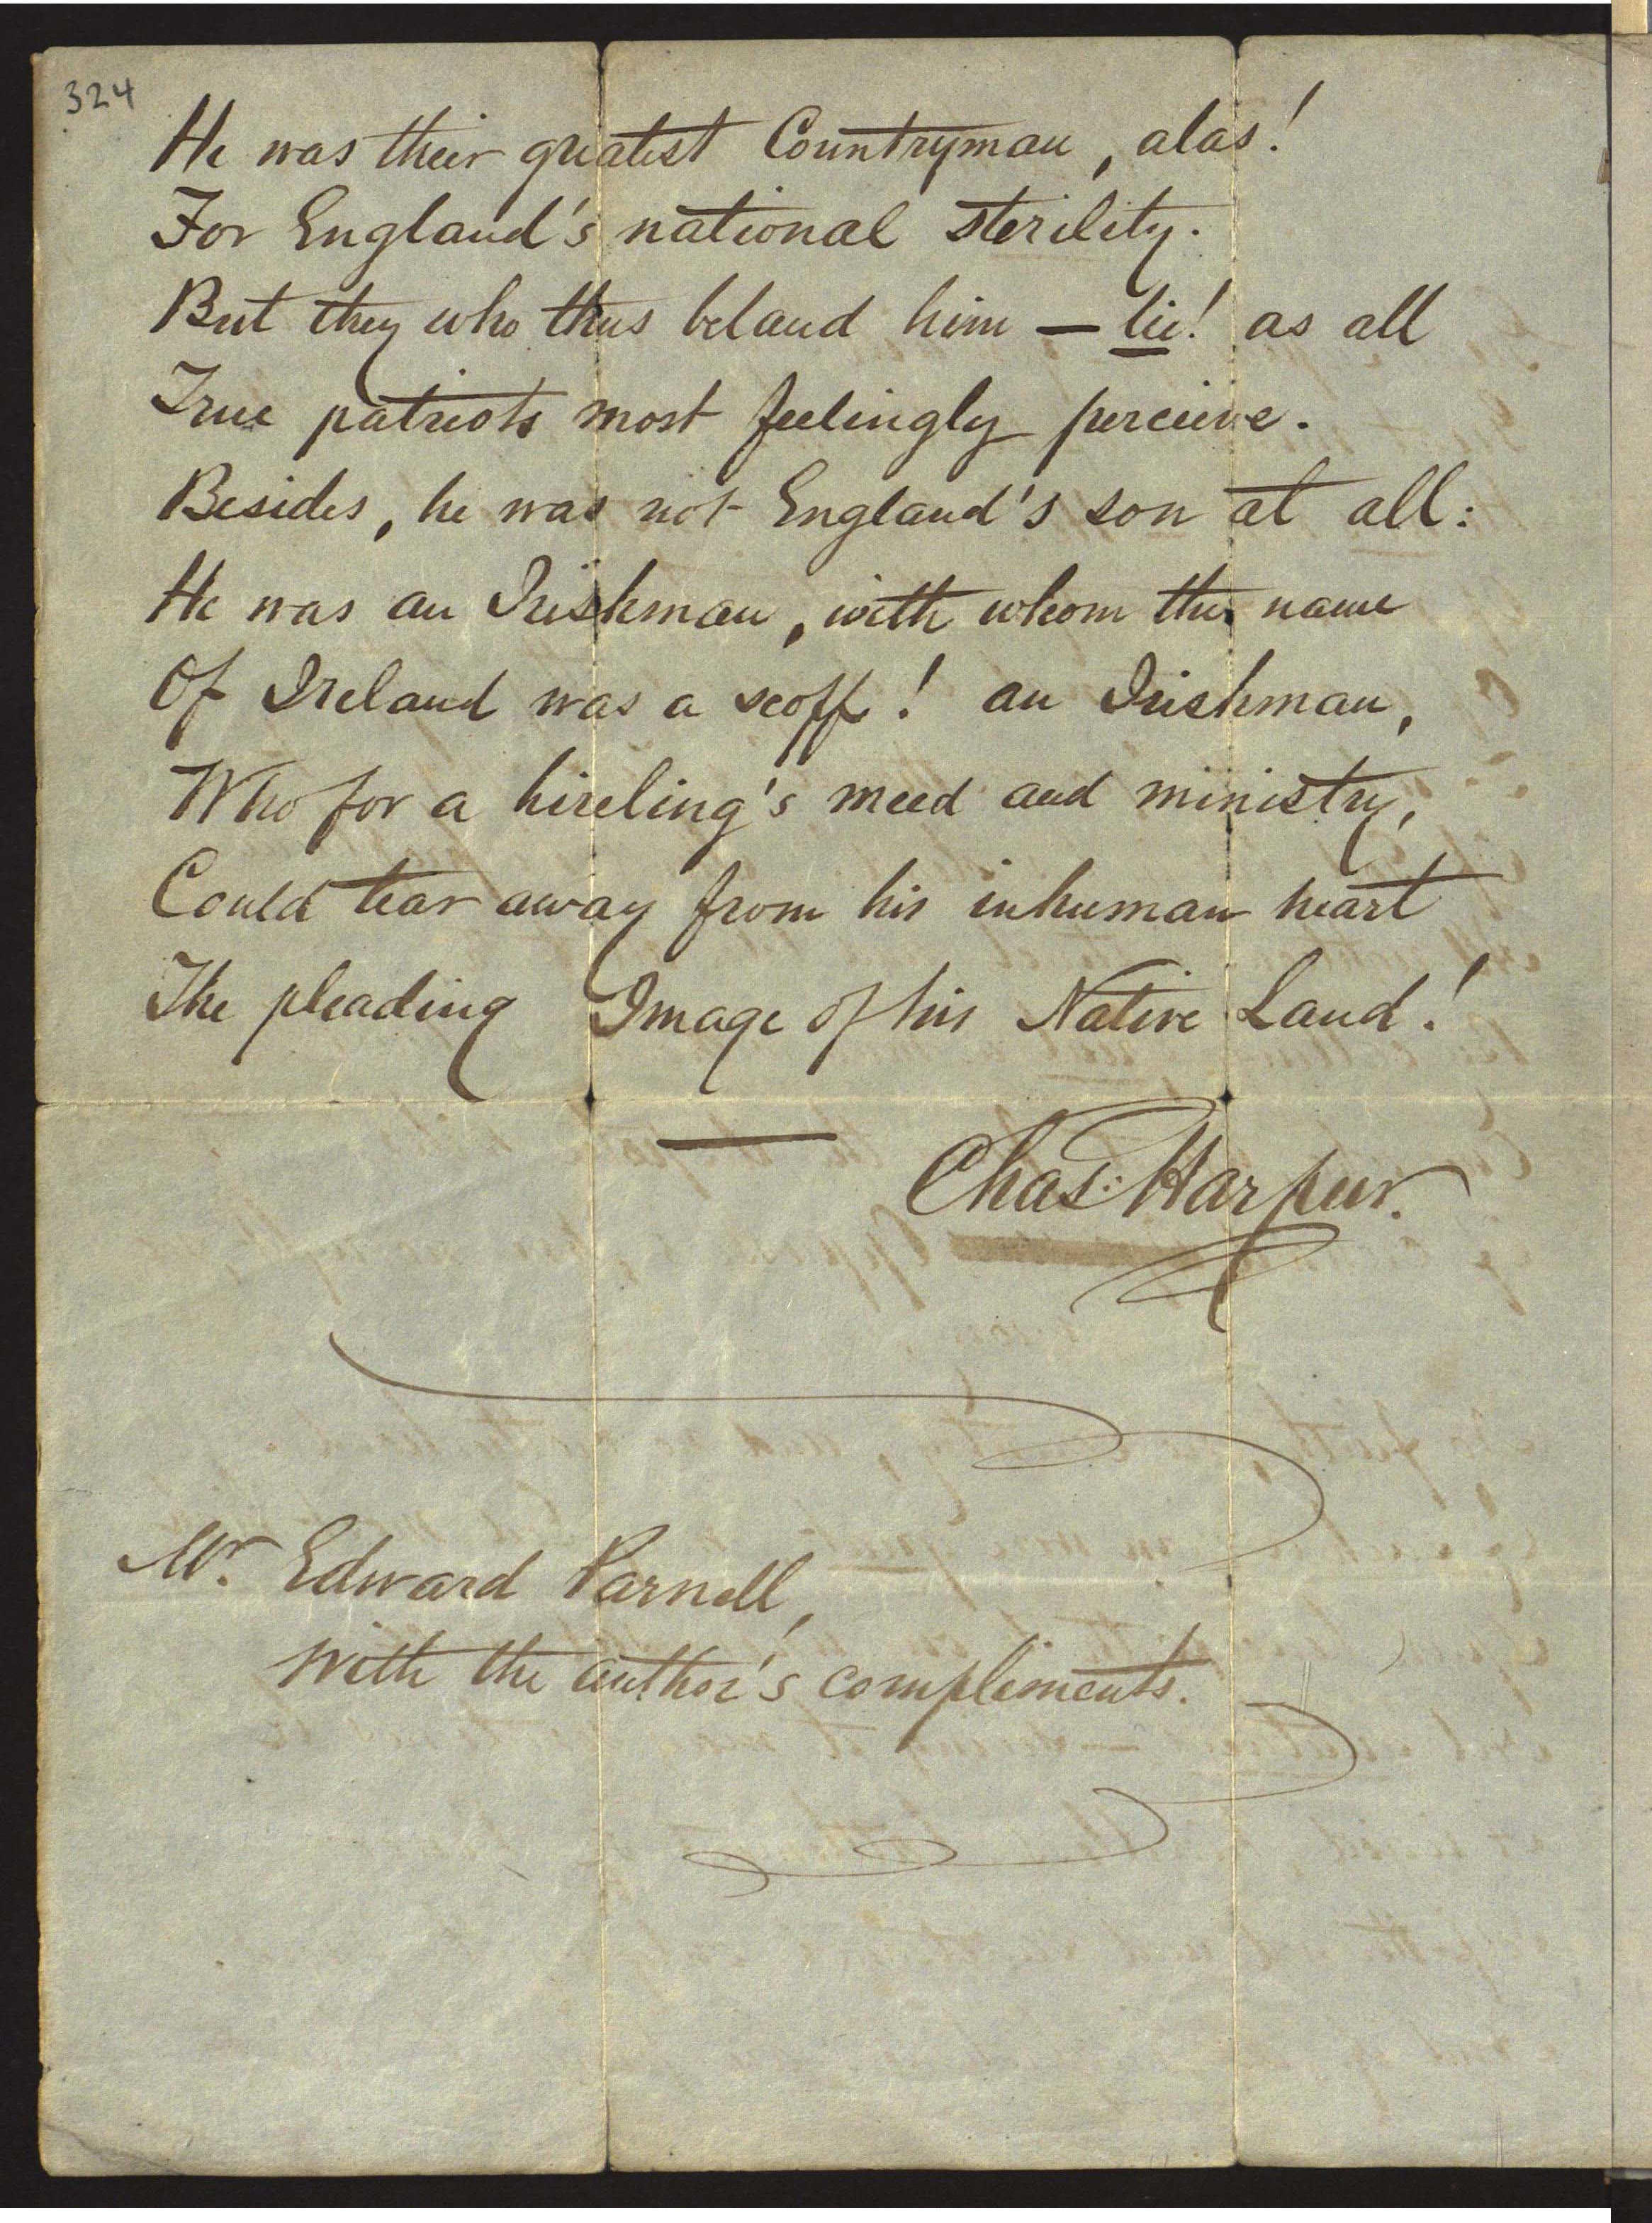 324
He was their greatest Countryman, alas!
For England's national sterility.
But they who thus belaud him — lie! as all
True patriots most feelingly perceive.
Besides, he was not England's son at all:
He was an Irishman, with whom the name
Of Ireland was a scoff! an Irishman,
Who for a hireling's meed and ministry,
Could tear away from his inhuman heart
The pleading Image of his Native Land!
Chas: Harpur.
Mr. Edward Parnell,
with the author's compliments.